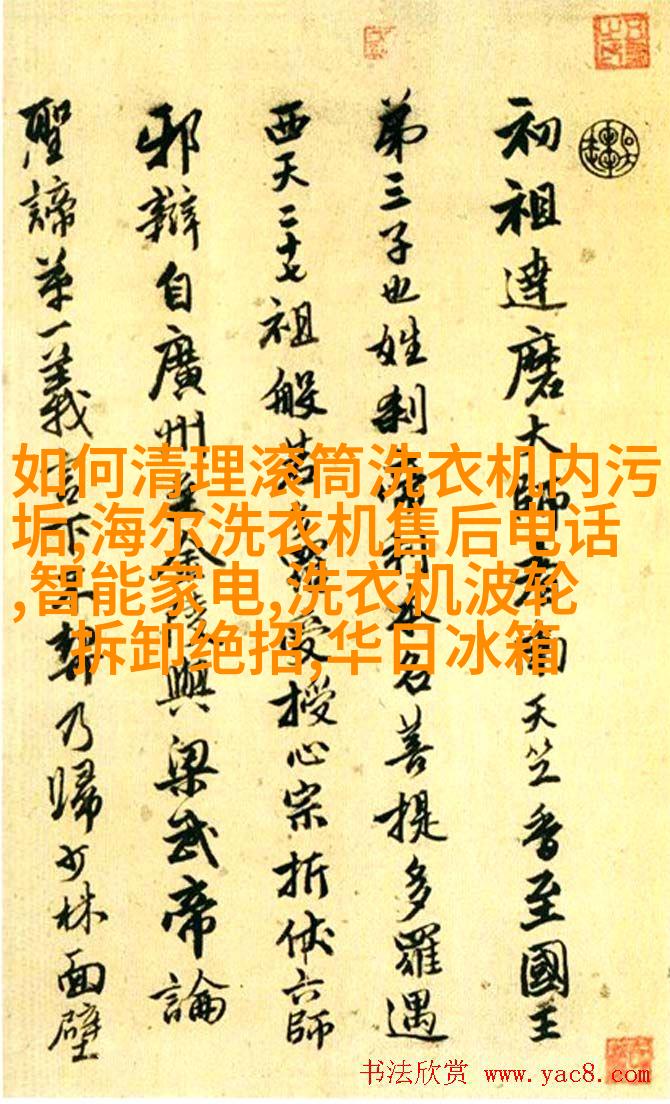 初祖達磨大師者南天竺香至國王
弟三子也姓刹帝利本名菩提多羅遇
西天二十七祖般若多羅受授心宗折伏六師
邪辯自廣州至金陵與梁武帝論
聖諦第一義言下不契乃歸少林面壁
如何清理滚筒洗衣机内污
垢,海尔洗衣机售后电话
,智能家电,洗衣机波轮
拆卸绝招,华日冰箱
书法欣赏 www.yac8.com